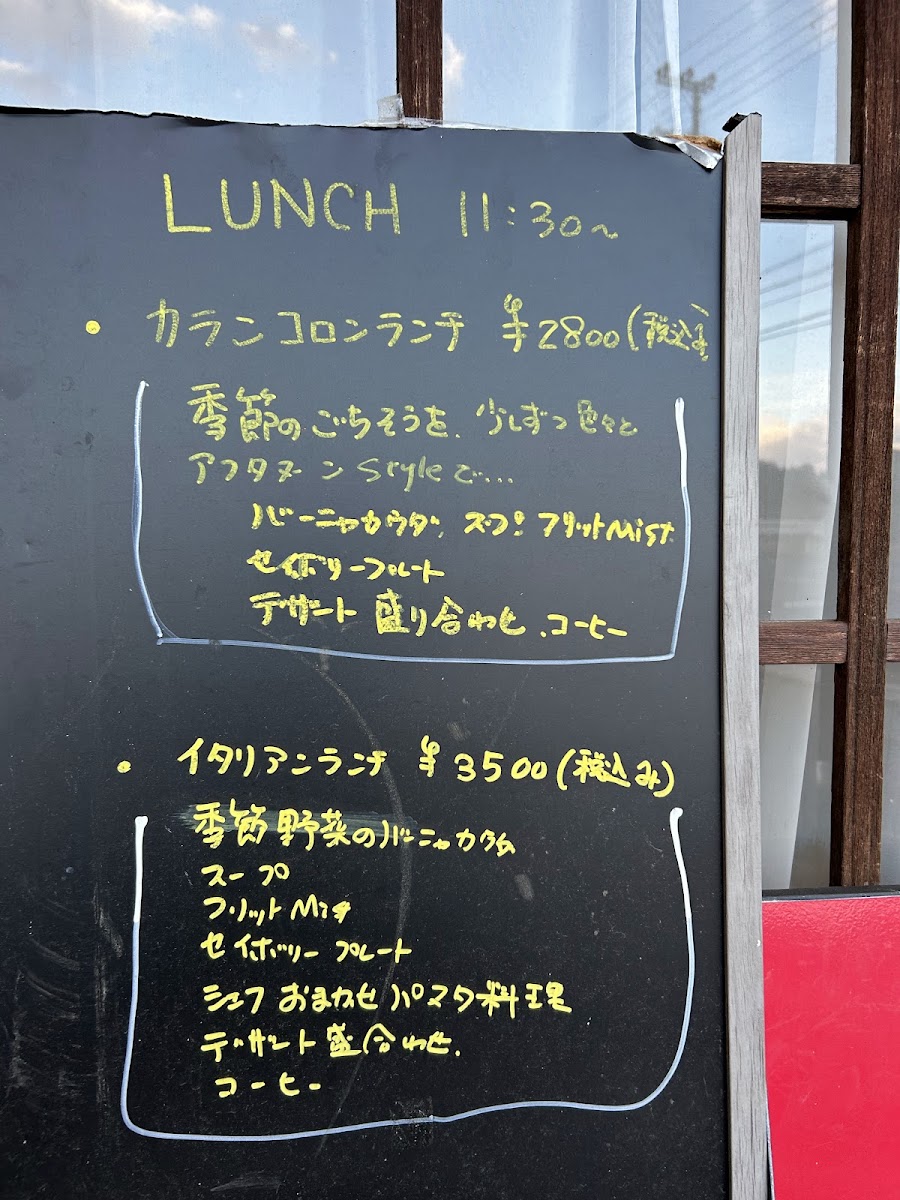 LUNCH 11:30~
・カランコロンランチ ¥2800(税込み)
季節のごちそうを、少しずつ色々と
アフタヌーンStyleで...
バーニャカウダ、スープ、フリットMist
セイボリープレート
デザート盛り合わせ、コーヒー
・イタリアンランチ ¥3500(税込み)
季節野菜のバーニャカウダ
スープ
フリットMist
セイボリープレート
シェフおまかせパスタ料理
デザート盛合わせ、
コーヒー